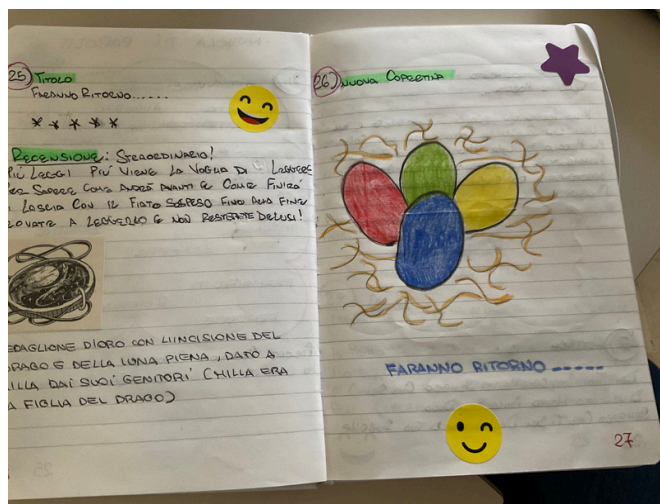 25) TITOLO
FARANNO RITORNO.....
RECENSIONE: STRAORDINARIO!
PIÙ LEGGI PIÙ VIENE LA VOGLIA DI LEGGERE
PER SAPERE COME ANDRÀ AVANTI E COME FINIRÀ
LASCIA CON IL FIATO SOSPESO FINO ALLA FINE
A LEGGERLO E NON RESTERETE DELUSI!
MEDAGLIONE D'ORO CON L'INCISIONE DEL
DRAGO E DELLA LUNA PIENA, DATO A
DAI SUOI GENITORI (MILLA ERA
A FIGLIA DEL DRAGO)
26) NUOVA COPERTINA
FARANNO RITORNO.....
27